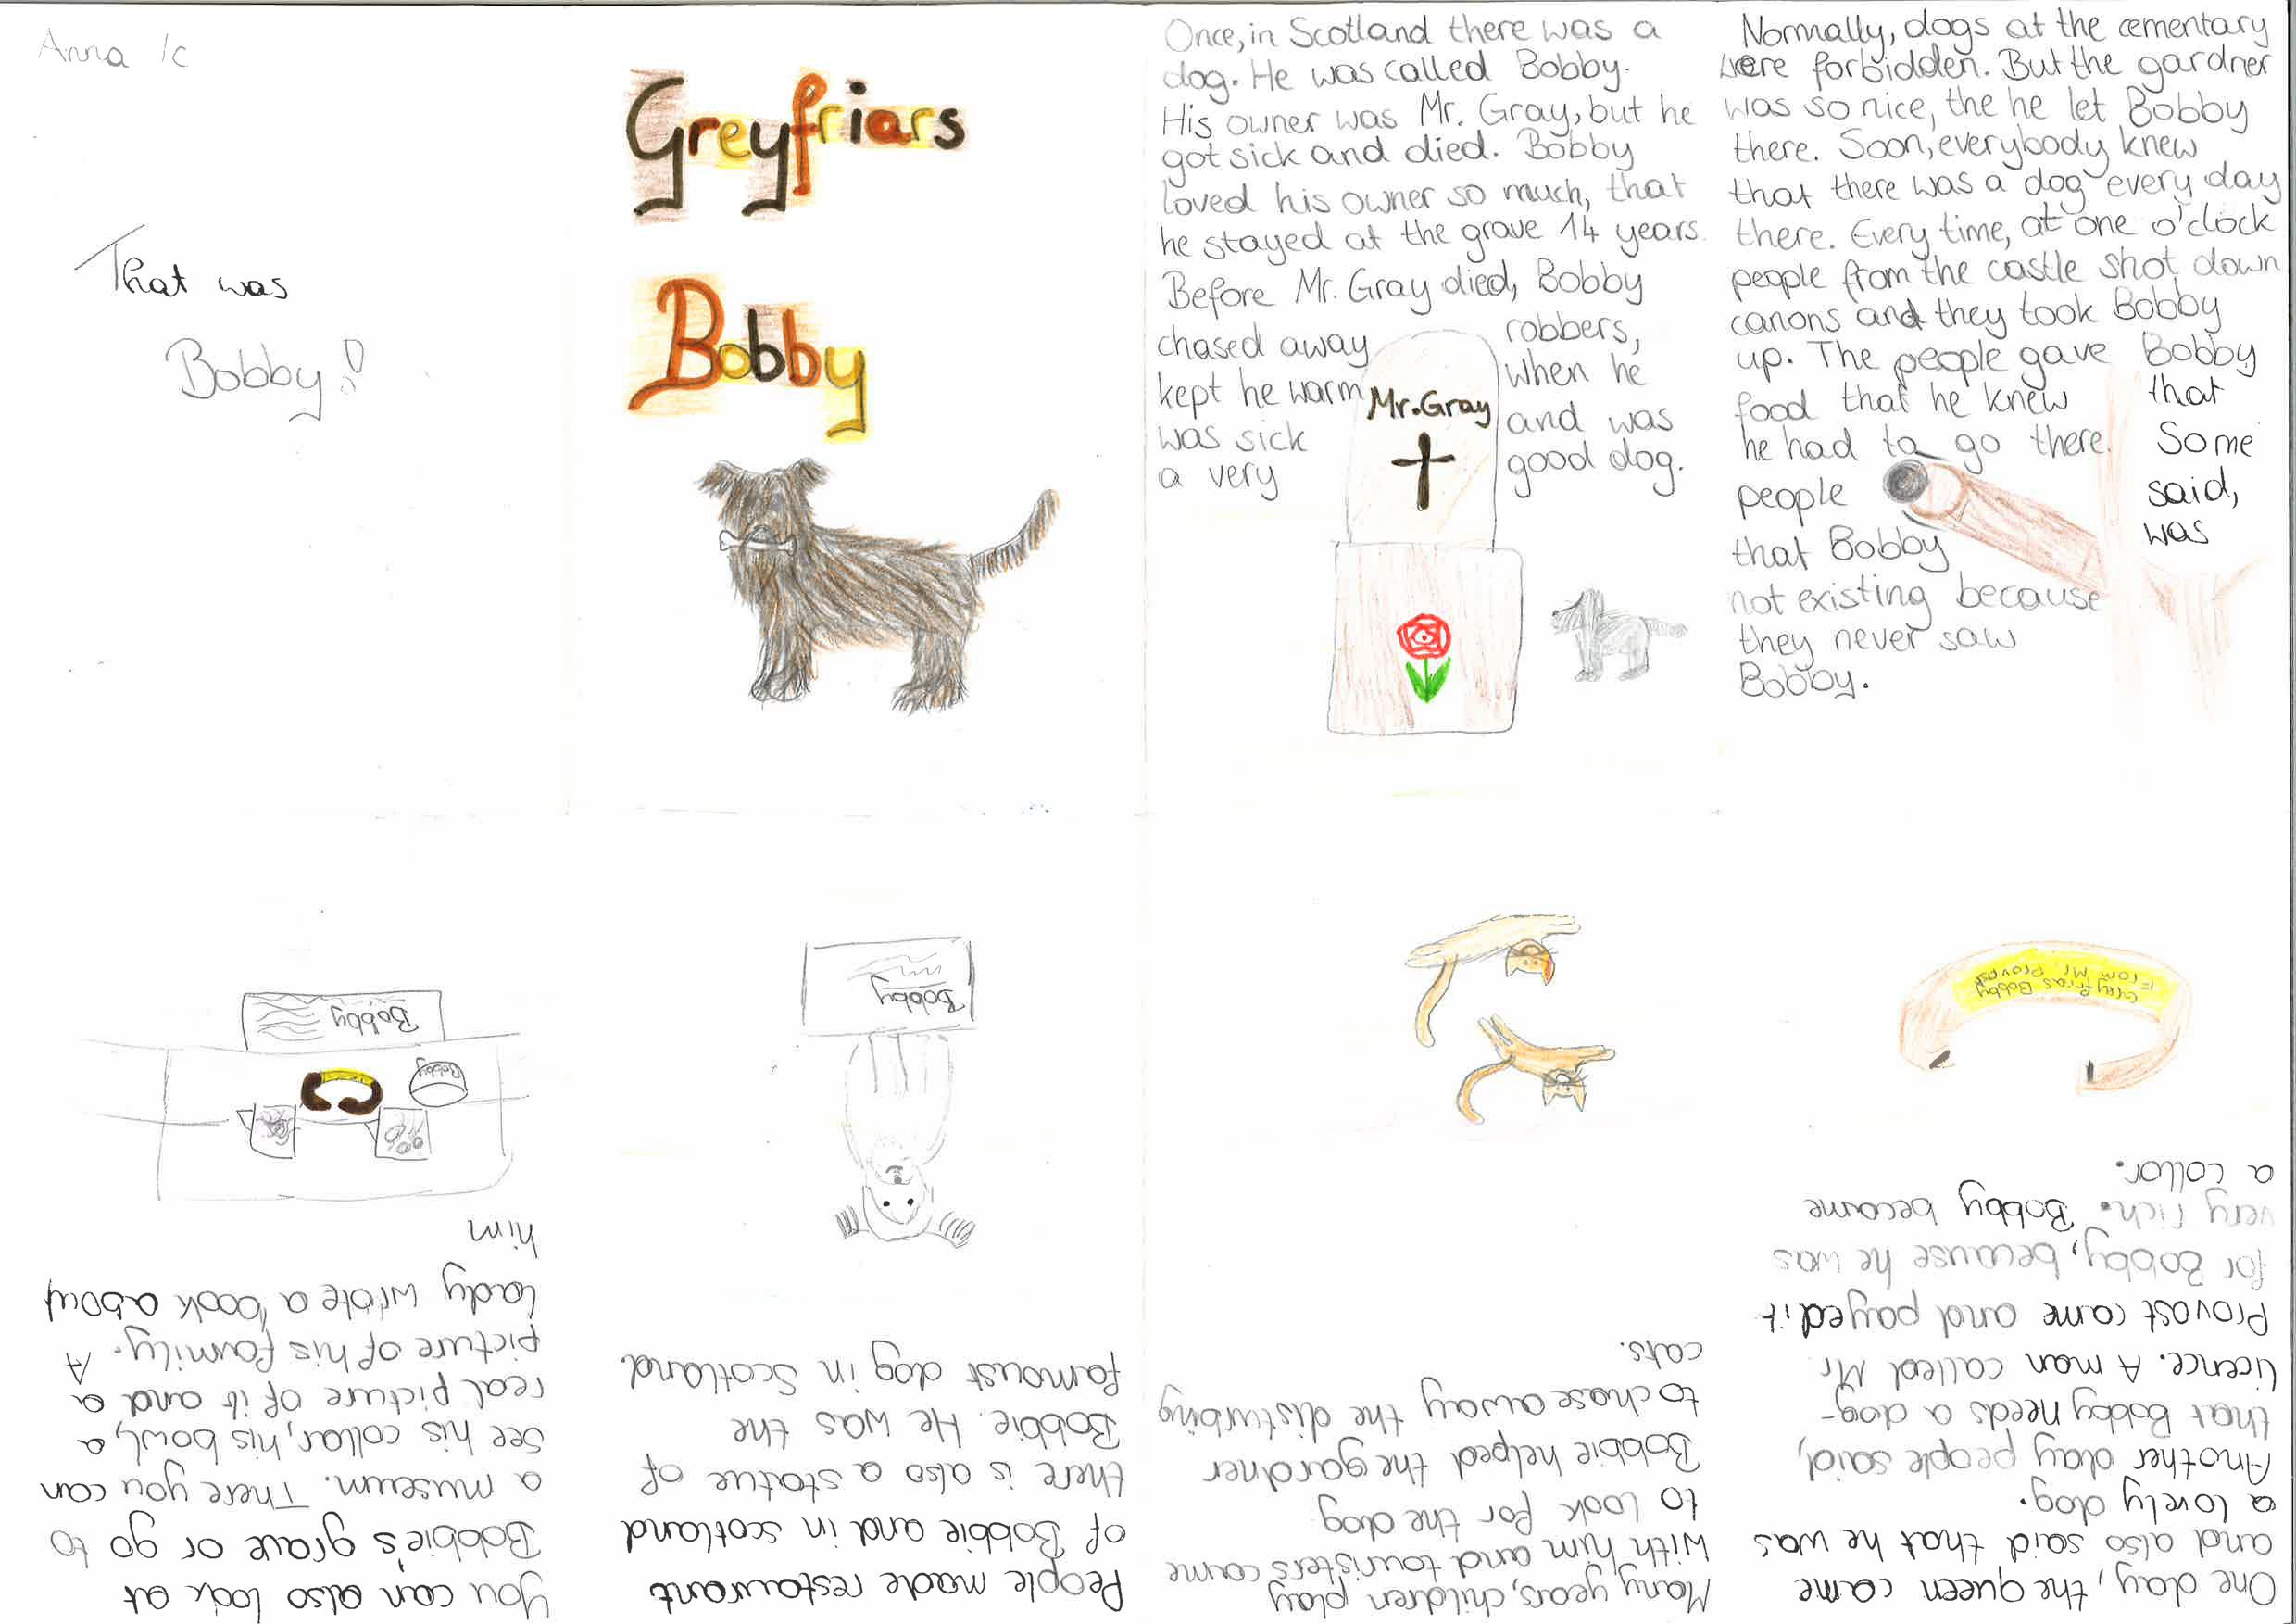 Greyfriars
Bobby
Once, in Scotland there was a
dog. He was called Bobby.
His owner was Mr. Gray, but he
got sick and died. Bobby
loved his owner so much, that
he stayed at the grave 14 years.
Before Mr. Gray died, Bobby
chased away robbers,
kept he warm when he
was sick and was
a very good dog.
Mr. Gray
Normally, dogs at the cementary
were forbidden. But the gardner
was so nice, the he let Bobby
there. Soon, everybody knew
that there was a dog every day
there. Every time, at one o'clock
people from the castle shot down
canons and they took Bobby
up. The people gave Bobby
food that he knew that
he had to go there. Some
people said,
that Bobby was
not existing because
they never saw
Bobby.
One day, the queen came
and also said that he was
a lovely dog.
Another day people said,
that Bobby needs a dog-
licence. A man called Mr
Provost came and payed it
for Bobby, because he was
very rich. Bobby became
a collor.
Greyfrias Bobby
From Mr. Provost
Many years, children play
with him and tourists came
to look for the dog
Bobbie helped the gardner
to chase away the disturbing
cats.
People made restaurant
of Bobbie and in scotland
there is also a statue of
Bobbie. He was the
famoust dog in Scotland.
Bobby
You can also look at
Bobbie's grave or go to
a museum. There you can
see his collar, his bowl, a
real picture of it and a
picture of his family. A
lady wrote a book abouy
him
Bobby
Bobby
Anna 1c
That was
Bobby!